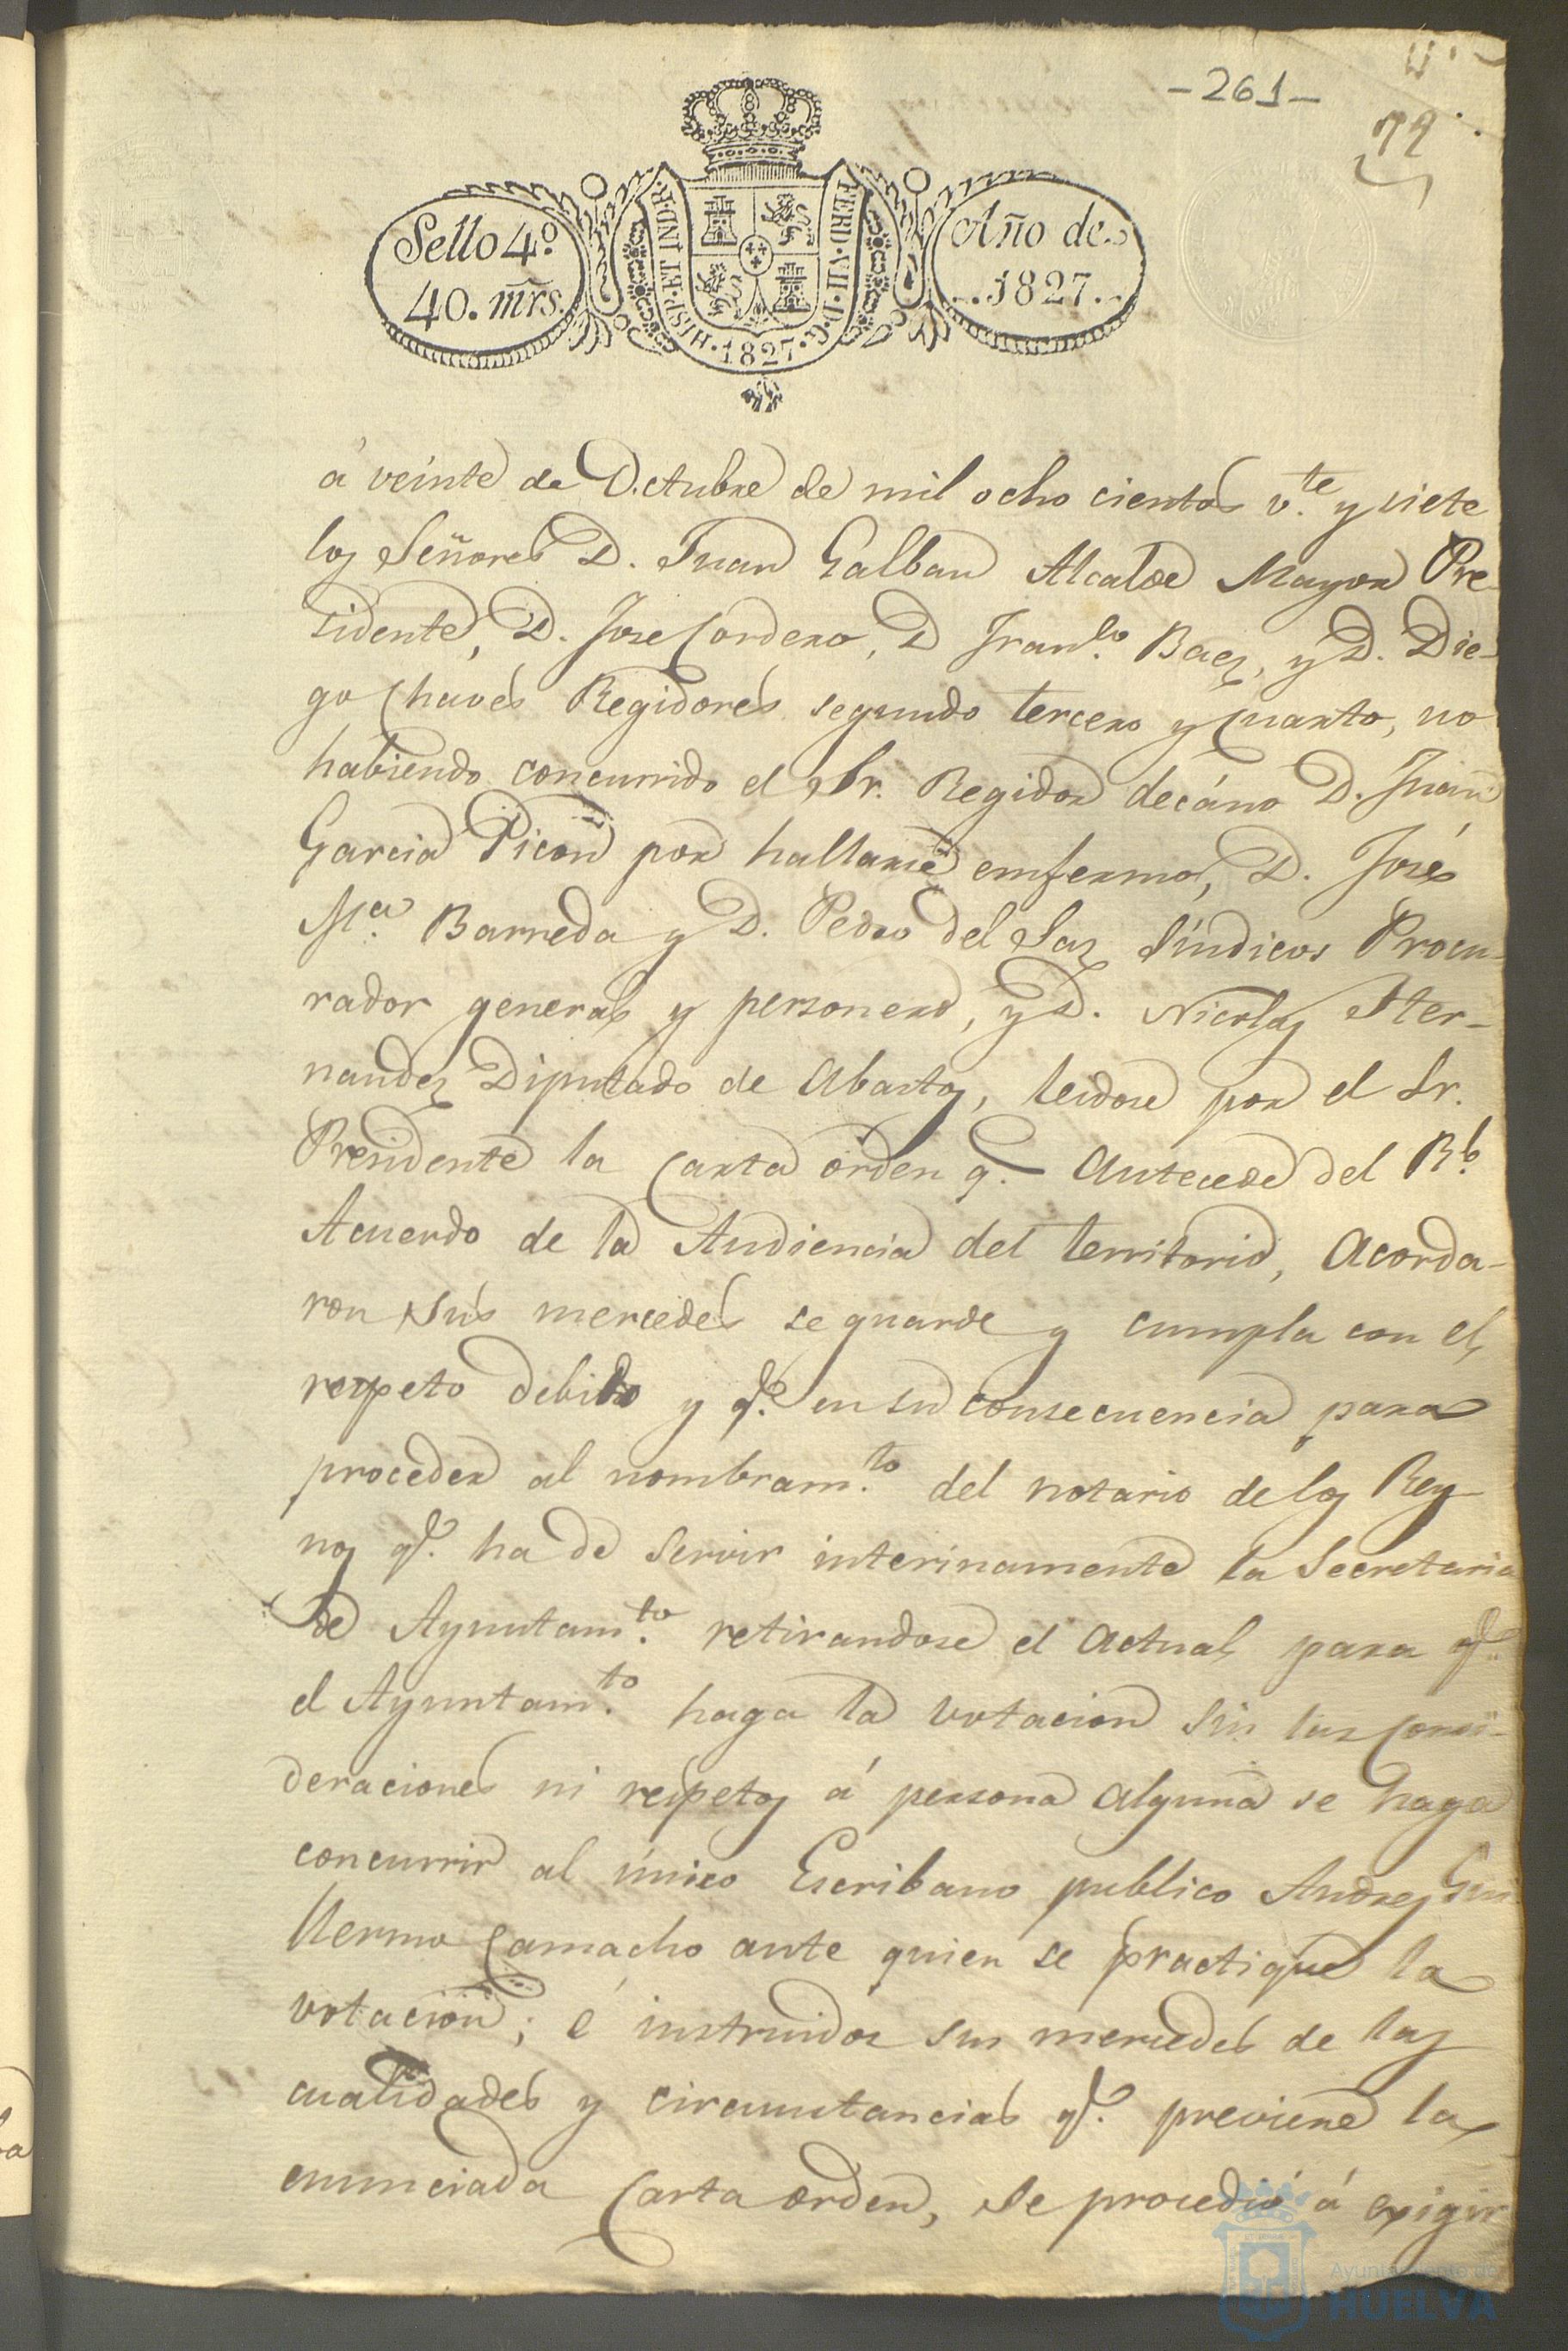 -261-
72
Sello 4º
40. mrs.
HISP. ET IND. R.
FERD. VII. D. G.
1827
Año de
1827.
á veinte de Octubre de mil ocho cientos v.te y siete
los Señores D. Juan Galban Alcalde Mayor Pre-
sidente, D. Jose Cordero, D Fran.co Baez, y D. Die-
go Chaves Regidores segundo tercero y cuarto, no
habiendo concurrido el Sr. Regidor decáno D. Juan
Garcia Picon por hallarse emfermo, D. José
M.a Barreda y D. Pedro del Saz Síndicos Procu-
rador general y personero, y D. Nicolas Her-
nandez Diputado de Abastos, leidose por el Sr.
Presidente la Carta orden q.e antecede del R.l
Acuerdo de la Audiencia del territorio, Acorda-
ron sus mercedes se guarde y cumpla con el
respeto debido y q.e en su consecuencia para
proceder al nombram.to del notario de los Rey
nos q.e ha de servir interinamente la Secretaria
de Ayuntam.to retirandose el actual para q.e
el Ayuntam.to haga la votacion sin las consi-
deraciones ni respetos á persona alguna se haga
concurrir al único Escribano publico Andres Gui
llermo Camacho ante quien se practique la
votacion; é instruidos sus mercedes de las
cualidades y circunstancias q.e previene la
enunciada Carta orden, se procedió á exigir
Ayuntamiento de
HUELVA